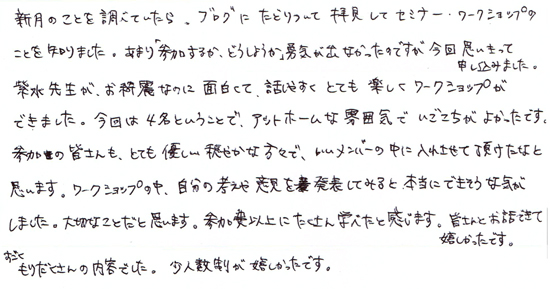 新月のことを調べていたら、ブログにたどりついて拝見してセミナー・ワークショップの
ことを知りました。あまり「参加するか、どうしようか」勇気が出なかったのですが今回思いきって
申し込みました。
紫水先生が、お綺麗なのに面白くて、話しやすくとても楽しくワークショップが
できました。今回は4名ということで、アットホームな雰囲気でいごこちがよかったです。
参加の皆さんも、とても優しい穏やかな方々で、いいメンバーの中に入れさせて頂けたなと
思います。ワークショップの中、自分の考えや意見を発表してみると本当にできそうな気が
しました。大切なことだと思います。参加費以上にたくさん学べたと感じます。皆さんとお話できて
嬉しかったです。
もりだくさんの内容でした。少人数制が嬉しかったです。